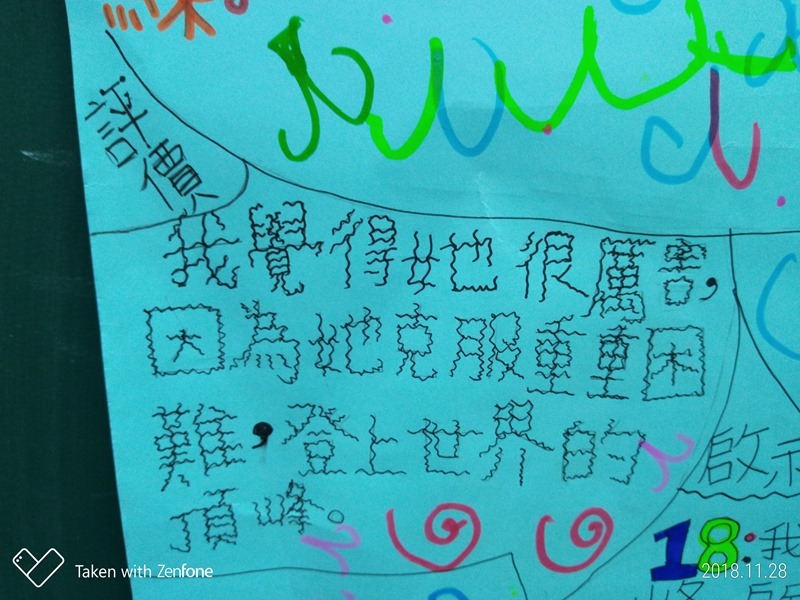 評價
我覺得她很厲害，
因為她克服重重困
難，登上世界的
頂峰。
啟示
18:我
Taken with Zenfone
2018.11.28